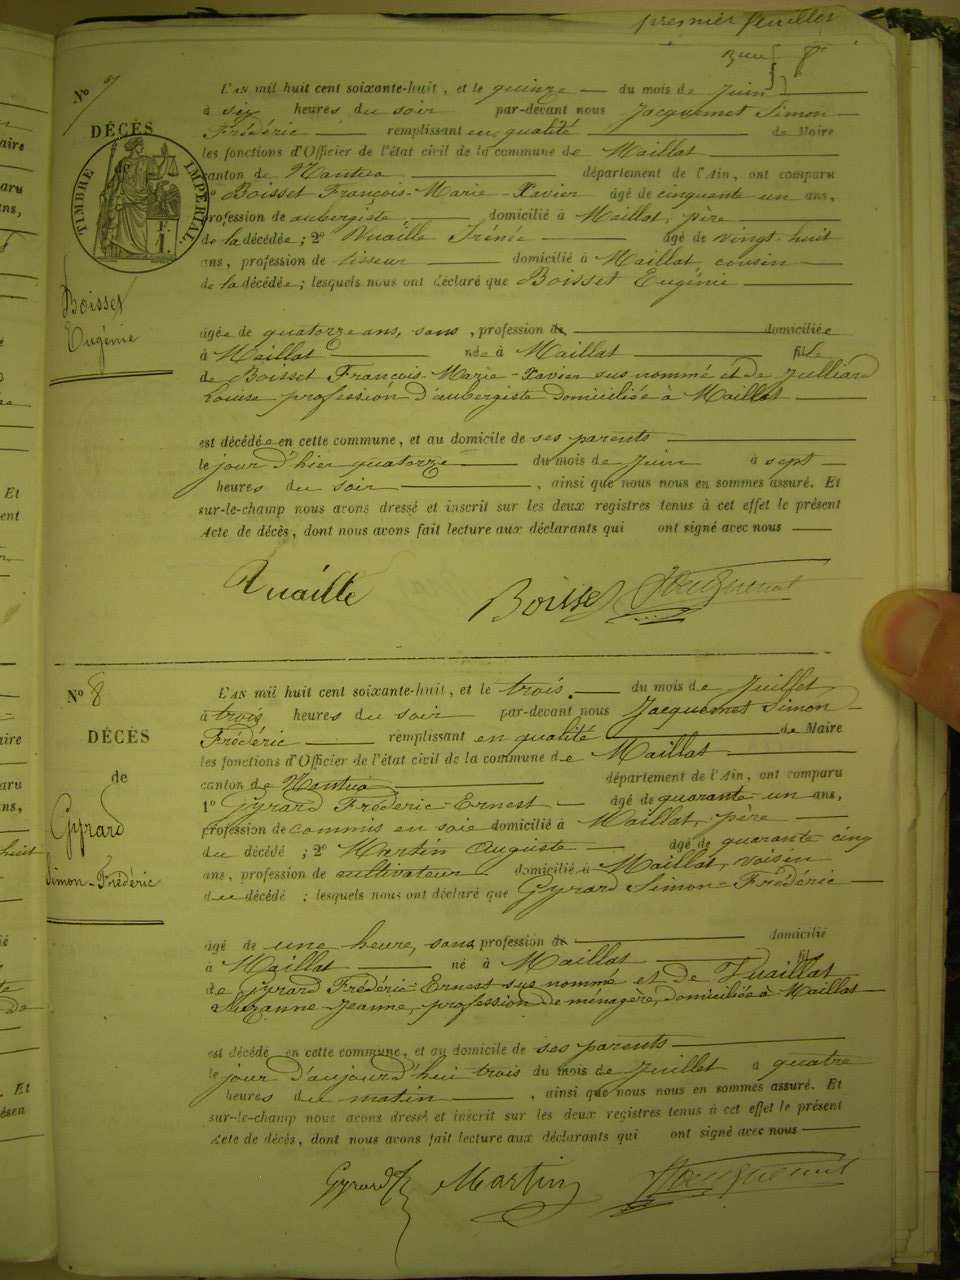 premier feuillet
8
L'AN mil huit cent soixante-huit, et le quinze du mois de Juin
à six heures du soir par-devant nous Jacquemet Simon
Frédéric remplissant en qualité de Maire
les fonctions d'Officier de l'état civil de la commune de Maillat
canton de Nantua département de l'Ain, ont comparu
1º Boisset François-Marie-Xavier âgé de cinquante un ans,
profession de aubergiste domicilié à Maillat, père
de la décédée; 2º Vuaille Irénée âgé de vingt-huit
ans, profession de tisseur domicilié à Maillat, cousin
de la décédée; lesquels nous ont déclaré que Boisset Eugénie
âgée de quatorze ans, sans, profession de domiciliée
à Maillat née à Maillat fille
de Boisset François-Marie-Xavier sus nommé et de Julliard
Louise profession d'aubergiste domiciliée à Maillat
est décédée en cette commune, et au domicile de ses parents
le jour d'hier quatorze du mois de Juin à sept
heures du soir, ainsi que nous nous en sommes assuré. Et
sur-le-champ nous avons dressé et inscrit sur les deux registres tenus à cet effet le présent
Acte de décès, dont nous avons fait lecture aux déclarants qui ont signé avec nous
Nº
DÉCÈS
TIMBRE IMPÉRIAL
Boisset
Eugénie
Vuaille Boisset
Nº 8
DÉCÈS
de
Gyrard
Simon-Frédéric
L'AN mil huit cent soixante-huit, et le trois du mois de Juillet
à trois heures du soir par-devant nous Jacquemet Simon
Frédéric remplissant en qualité de Maire
les fonctions d'Officier de l'état civil de la commune de Maillat
canton de Nantua département de l'Ain, ont comparu
1º Gyrard Frédéric-Ernest âgé de quarante-un ans,
profession de commis en soie domicilié à Maillat, père
du décédé; 2º Martin Auguste âgé de quarante cinq
ans, profession de cultivateur domicilié à Maillat, voisin
du décédé; lesquels nous ont déclaré que Gyrard Simon-Frédéric
âgé de une heure, sans profession de domicilié
à Maillat né à Maillat fils
de Gyrard Frédéric-Ernest sus nommé et de Vuaillat
Suzanne-Jeanne, profession de ménagère, domiciliée à Maillat
est décédé en cette commune, et au domicile de ses parents
le jour d'aujourd'hui trois du mois de Juillet à quatre
heures du matin, ainsi que nous nous en sommes assuré. Et
sur-le-champ nous avons dressé et inscrit sur les deux registres tenus à cet effet le présent
Acte de décès, dont nous avons fait lecture aux déclarants qui ont signé avec nous
Gyrard Martin